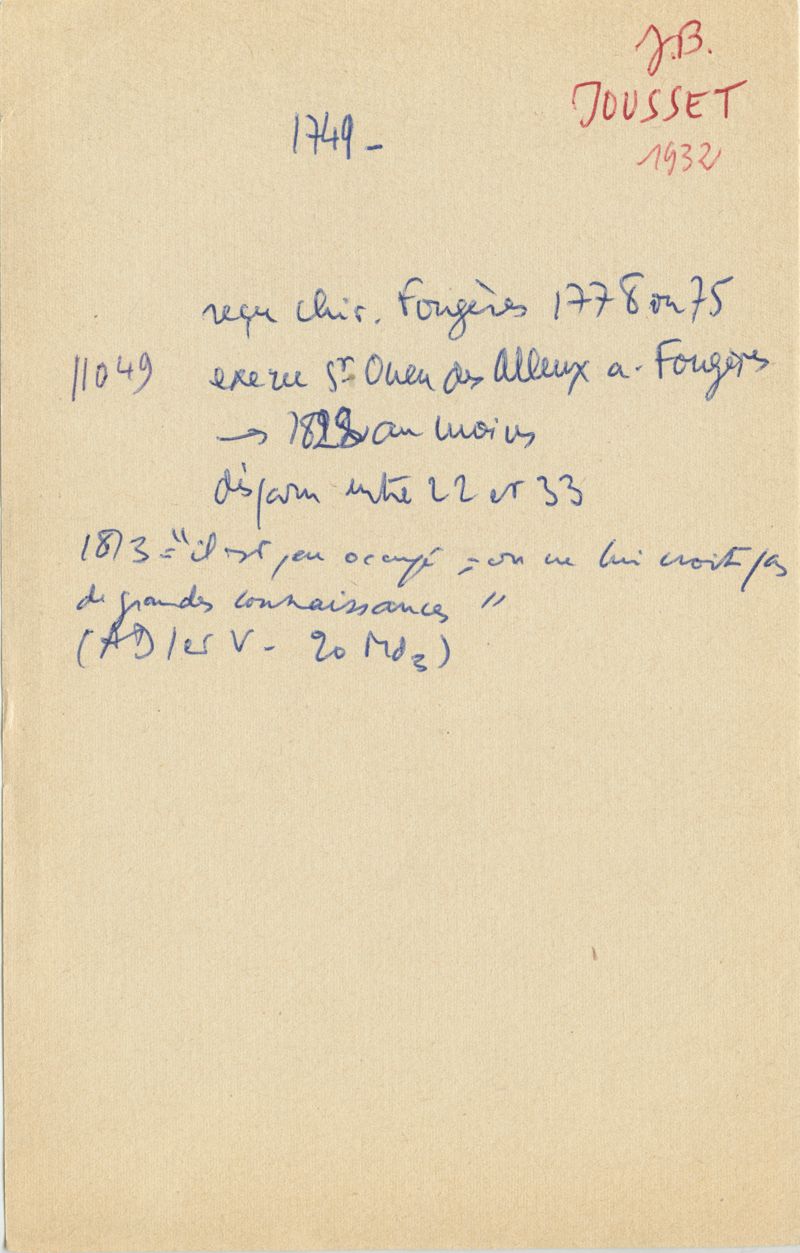 J.B.
JOUSSET
1932
1749 -
reçu chir. Fougères 1778 ou 75
11049
exerce St Ouen des Alleux a. Fougères
→ 1822 au moins
disparu entre 22 et 33
1813 = "il est peu occupé = on ne lui croit pas
de grandes connaissances"
(AD I et V - 20 Md3)